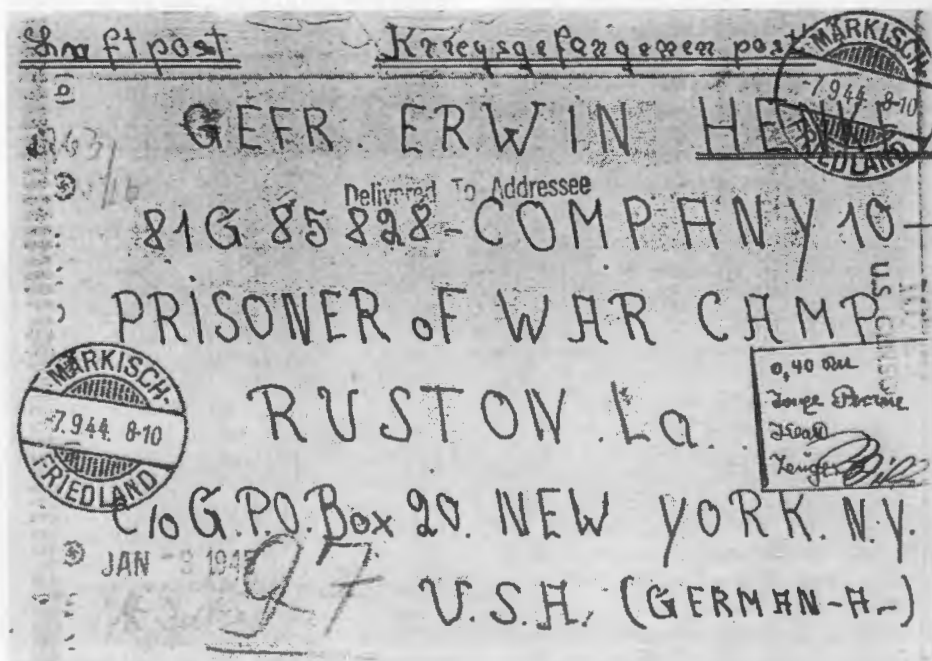 Luftpost Kriegsgefangenenpost
MÄRKISCH-
-7.9.44. 8-10
FRIEDLAND
GEFR. ERWIN
Delivered To Addressee
81G 85828-COMPANY 10-
PRISONER oF WAR CAMP
U.S.
RUSTON. La.
0,40 RM
Inge
MÄRKISCH-
-7.9.44. 8-10
FRIEDLAND
C/o G.P.O. Box 20. NEW YORK. N.Y.
JAN
27
U.S.A. (GERMAN-A-)